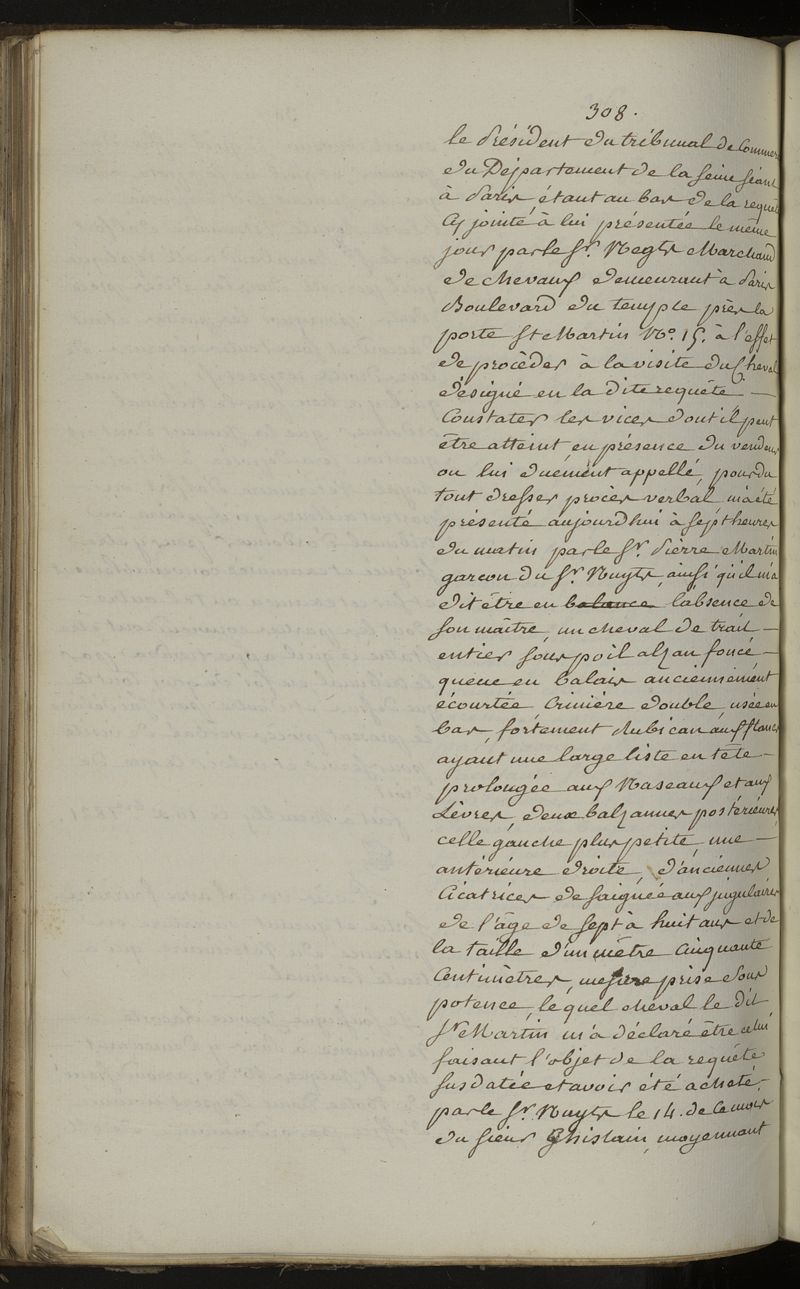 308.
le Président du tribunal de Commer
du Département de la Seine séant
à Paris, étant au bas de la requête
Cy jointe à lui présentée le même
jour par le Sr. Nuyts Marchand
de chevaux demeurant à Paris
Boulevard du temple près la
porte St Martin No. 15. à l'effet
de procéder à la visite du Cheval
désigné en la dite requête. —
Constater les vices dont il peut
être atteint, en présence du vendeur
ou lui duement appellé, pour du
tout dresser procès verbal, m'a été
présenté aujourdhui à sept heures
du matin par le Sr. Pierre Martin
garçon du Sr. Nuyts, ainsi qu'il m'a
dit être en balance l'absence de
son maître, un cheval de trait —
entier sous poil alzan foncé, —
queue en balais anciennement
écourtée, Crinière double, usée en
bas, fortement Rubican aux flancs
ayant une large liste en tête —
prolongée aux Naseaux et aux
Lèvres, deux balzannes postérieures
celle gauche plus petite, une —
antérieure droite, d'anciennes
Cicatrices de saignée aux jugulaires
de l'âge de sept à huit ans et de
la taille d'un mètre Cinquante
Centimètres, mesure prise sous
potence, le quel cheval le dit
Sr. Martin m'a déclaré être celui
faisant l'objet de la requête
susdatée et avoir été acheté,
par le Sr. Nuyts le 14. de Ce mois
du sieur Ghislain, moyennant